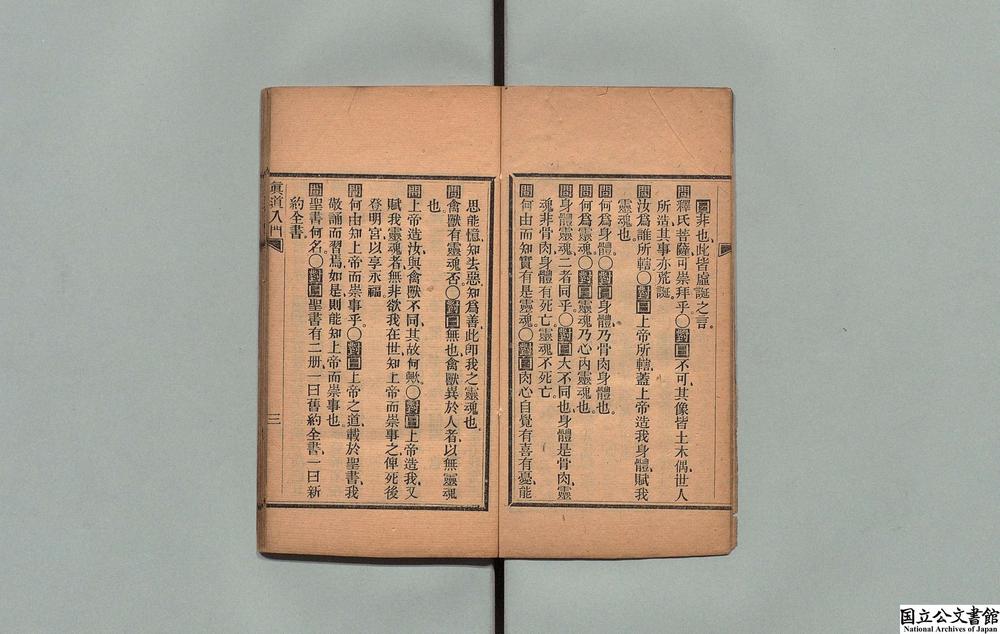 曰非也、此皆虛誕之言。
問釋氏菩薩、可崇拜乎。〇對曰不可、其像皆土木偶、世人
所造、其事亦荒誕。
問汝爲誰所轄。〇對曰上帝所轄、蓋上帝造我身體、賦我
靈魂也。
問何爲身體。〇對曰身體乃骨肉身體也。
問何爲靈魂。〇對曰靈魂乃心內靈魂也。
問身體靈魂、二者同乎。〇對曰大不同也、身體是骨肉、靈
魂非骨肉、身體有死亡、靈魂不死亡。
問何由而知實有是靈魂。〇對曰肉心自覺有喜有憂、能
思能憶、知去惡、知爲善、此卽我之靈魂也。
問禽獸有靈魂否。〇對曰無也、禽獸異於人者、以無靈魂
也。
問上帝造汝、與禽獸不同、其故何歟。〇對曰上帝造我、又
賦我靈魂者、無非欲我在世、知上帝而崇事之、俾死後
登明宮、以享永福。
問何由知上帝而崇事乎。〇對曰上帝之道、載於聖書、我
敬誦而習焉、如是則能知上帝而崇事也。
問聖書何名。〇對曰聖書有二册、一曰舊約全書、一曰新
約全書。
眞道入門
三
国立公文書館
National Archives of Japan